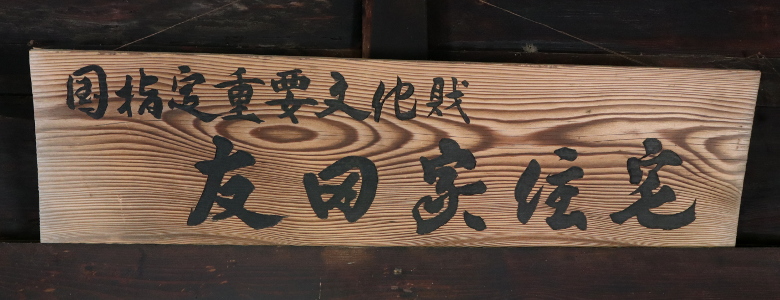 国指定重要文化財
友田家住宅